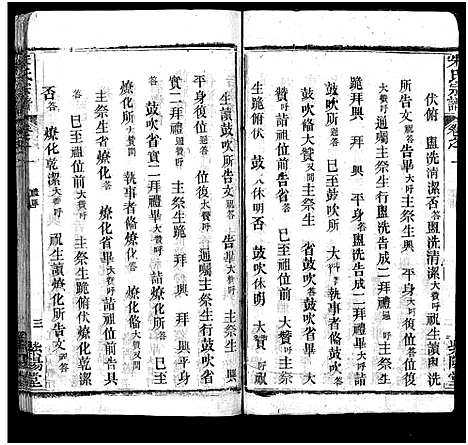 朱氏宗譜
伏俯 盥洗清潔否 答 盥洗清潔 大贊呼 祝生讀盥洗
所告文 亞答 告畢 大贊呼 主祭生行盥洗告成二拜禮 贊呼
跪拜興 拜興 平身 答 盥洗告成二拜禮畢
大贊呼 遍囑主祭生行鼓吹所 大贊呼 執事者俻鼓吹 答
鼓吹俻 大贊又問 主祭生 省鼓吹 答 鼓吹省
贊呼 請詣祖位前告省 答 已至祖位前 贊呼 主祭
生跪俯伏 鼓吹休明否 鼓吹休明 大贊呼 祝
生讀鼓吹所告文 亞答 告畢 大贊呼 主祭生 興
平身復位 答 位復 大贊呼 遍囑主祭生行鼓吹省
實二拜禮 贊呼 跪 拜興 拜興 平身
答 鼓吹省實二拜禮畢 大贊呼 請詣燎化所 答 已至
燎化所 贊呼 執事者俻燎化 答 燎化俻 大贊又問 主祭
生省燎化 答 燎化省畢 大贊呼 請詣祖位前告具
答 已至祖位前 贊呼 主祭生跪俯伏燎化乾潔
否 答 燎化乾潔 大贊呼 祝生讀燎化所告文 亞答
三 紫陽堂